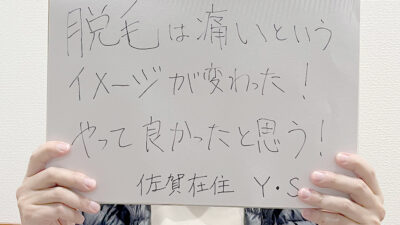 脱毛は痛いという
イメージが変わった!
やって良かったと思う!
佐賀在住 Y・S